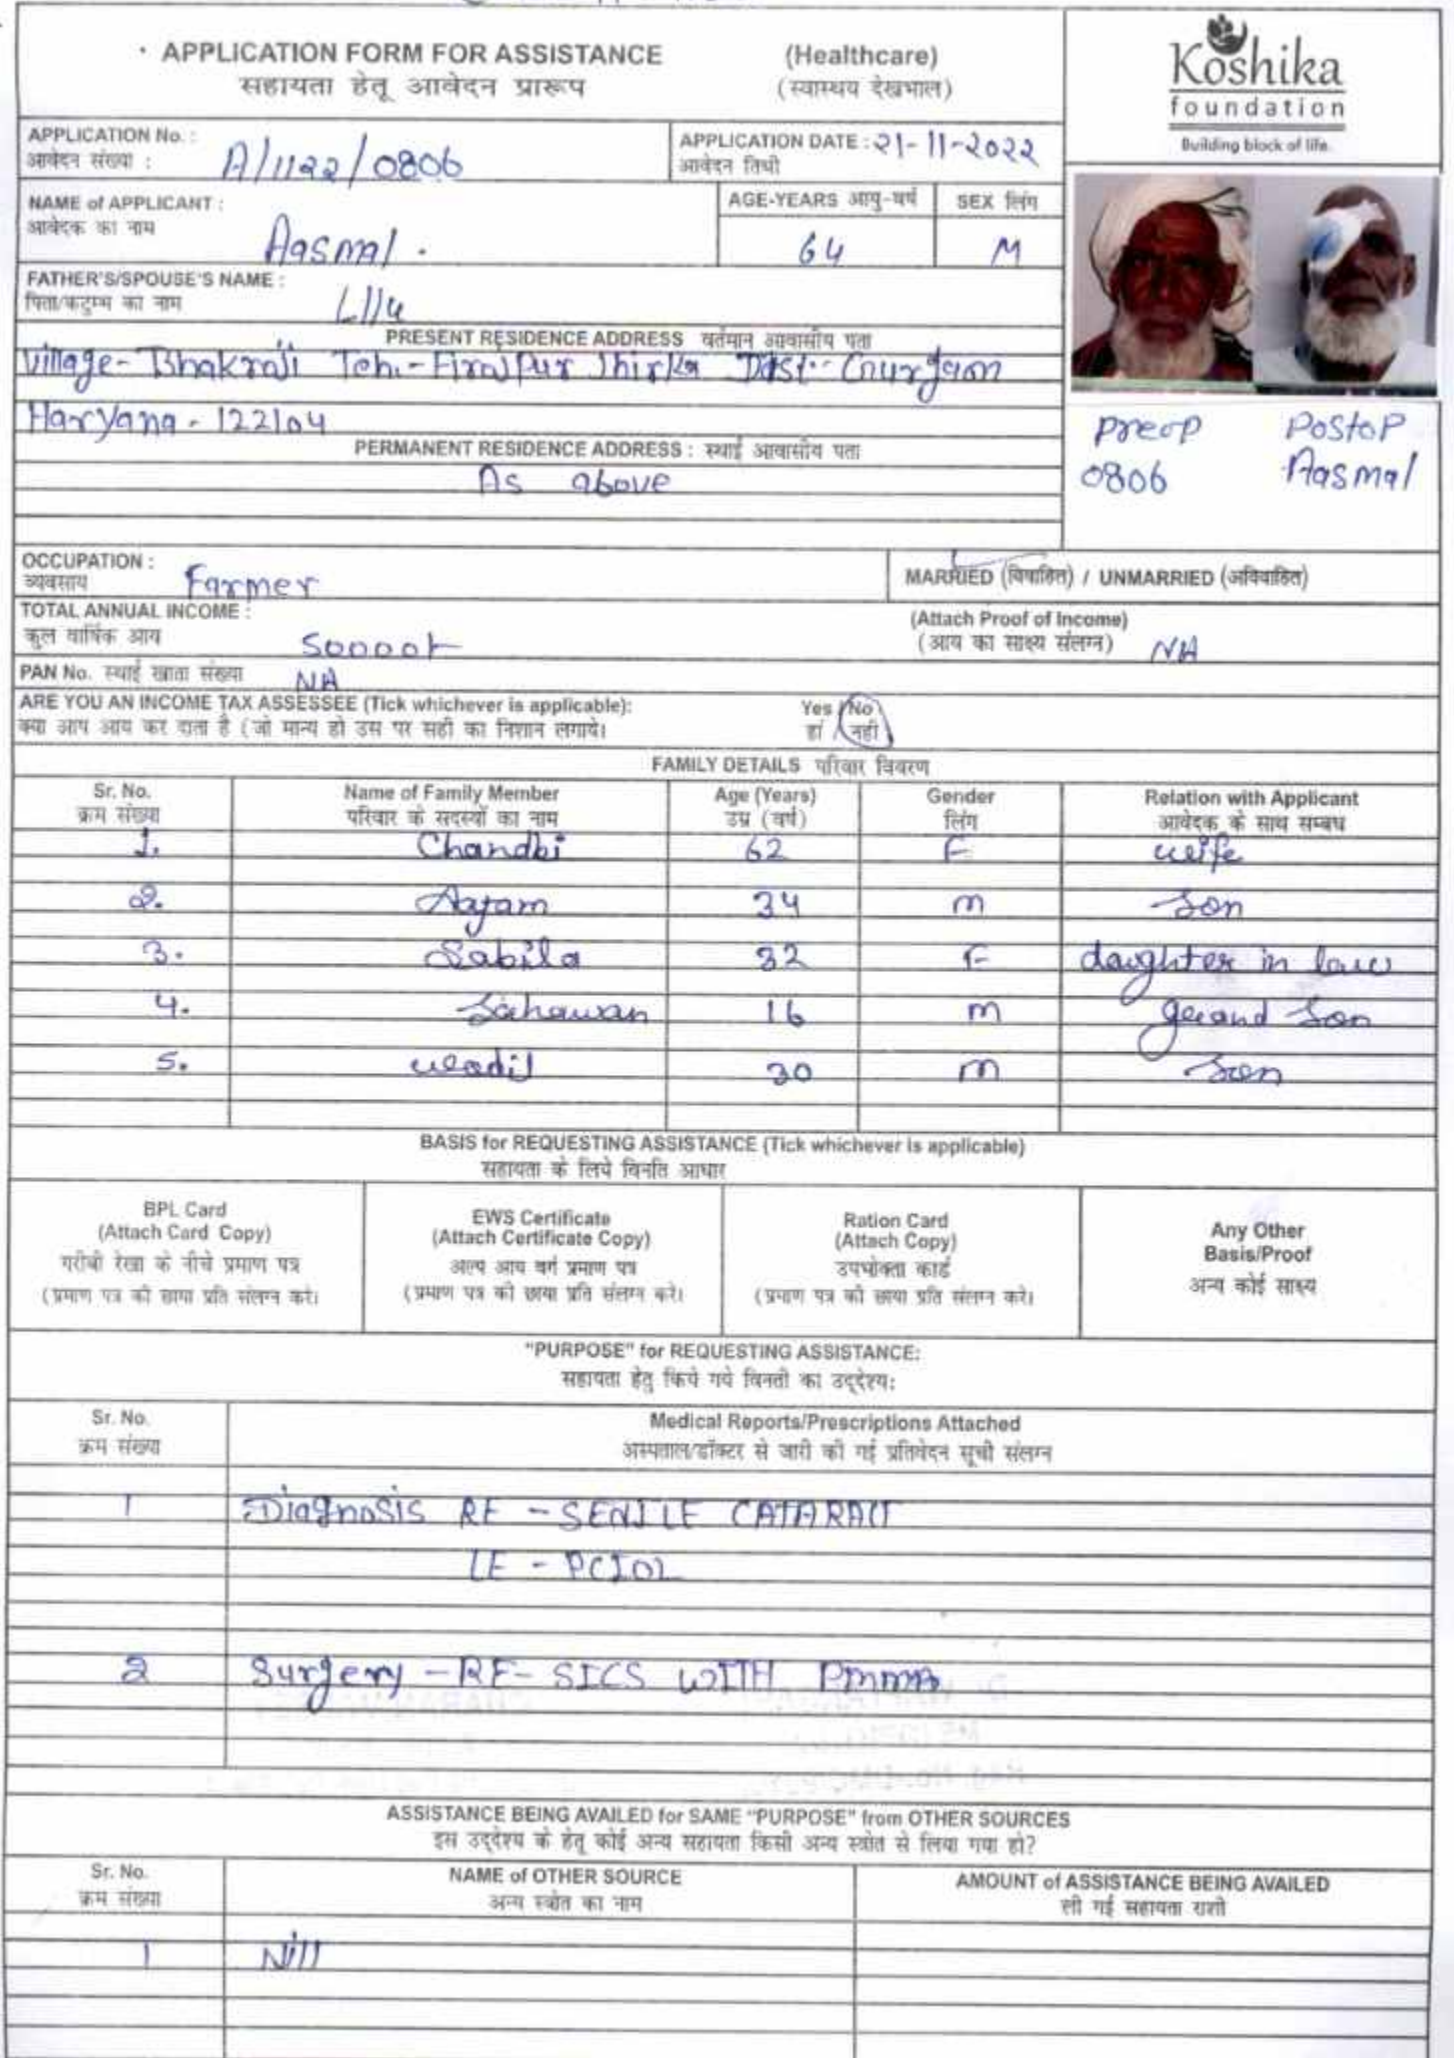 APPLICATION FORM FOR ASSISTANCE (Healthcare)
सहायता हेतू आवेदन प्रारूप (स्वास्थय देखभाल)
Koshika
foundation
Building block of life.
APPLICATION No. : A/1122/0806
आवेदन संख्या :
APPLICATION DATE : 21-11-2022
आवेदन तिथी
NAME of APPLICANT : Aasmal.
आवेदक का नाम
AGE-YEARS आयु-वर्ष 64
SEX लिंग M
FATHER'S/SPOUSE'S NAME :
पिता/कटुम्ब का नाम
PRESENT RESIDENCE ADDRESS वर्तमान आवासीय पता
Village- Teh.- Jhirka Dist- Gurgaon
Haryana - 122104
PERMANENT RESIDENCE ADDRESS : स्थाई आवासीय पता
As above
preop Postop
0806 Aasmal
OCCUPATION : Farmer
व्यवसाय
MARRIED (विवाहित) / UNMARRIED (अविवाहित)
TOTAL ANNUAL INCOME :
कुल वार्षिक आय 50000/-
(Attach Proof of Income)
(आय का साक्ष्य संलग्न) NA
PAN No. स्थाई खाता संख्या NA
ARE YOU AN INCOME TAX ASSESSEE (Tick whichever is applicable): Yes / No
क्या आप आय कर दाता है (जो मान्य हो उस पर सही का निशान लगाये। हां / नही
FAMILY DETAILS परिवार विवरण
Sr. No. Name of Family Member Age (Years) Gender Relation with Applicant
क्रम संख्या परिवार के सदस्यों का नाम उम्र (वर्ष) लिंग आवेदक के साथ सम्बध
1. Chandbi 62 F wife
2. Aajam 34 m Son
3. Sabila 32 F daughter in law
4. Sahawan 16 m grand Son
5. 30 m Son
BASIS for REQUESTING ASSISTANCE (Tick whichever is applicable)
सहायता के लिये विनति आधार
BPL Card
(Attach Card Copy)
गरीबी रेखा के नीचे प्रमाण पत्र
(प्रमाण पत्र की छाया प्रति संलग्न करे।
EWS Certificate
(Attach Certificate Copy)
अल्प आय वर्ग प्रमाण पत्र
(प्रमाण पत्र की छाया प्रति संलग्न करे।
Ration Card
(Attach Copy)
उपभोक्ता कार्ड
(प्रमाण पत्र की छाया प्रति संलग्न करे।
Any Other
Basis/Proof
अन्य कोई साक्ष्य
"PURPOSE" for REQUESTING ASSISTANCE:
सहायता हेतु किये गये विनती का उद्देश्य:
Sr. No. Medical Reports/Prescriptions Attached
क्रम संख्या अस्पताल/डॉक्टर से जारी की गई प्रतिवेदन सूची संलग्न
1 Diagnosis RE - SENILE CATARACT
LE - PCIOL
2 Surgery - RE - SICS WITH PMMA
ASSISTANCE BEING AVAILED for SAME "PURPOSE" from OTHER SOURCES
इस उद्देश्य के हेतू कोई अन्य सहायता किसी अन्य स्त्रोत से लिया गया हो?
Sr. No. NAME of OTHER SOURCE AMOUNT of ASSISTANCE BEING AVAILED
क्रम संख्या अन्य स्त्रोत का नाम ली गई सहायता राशी
1 Nill